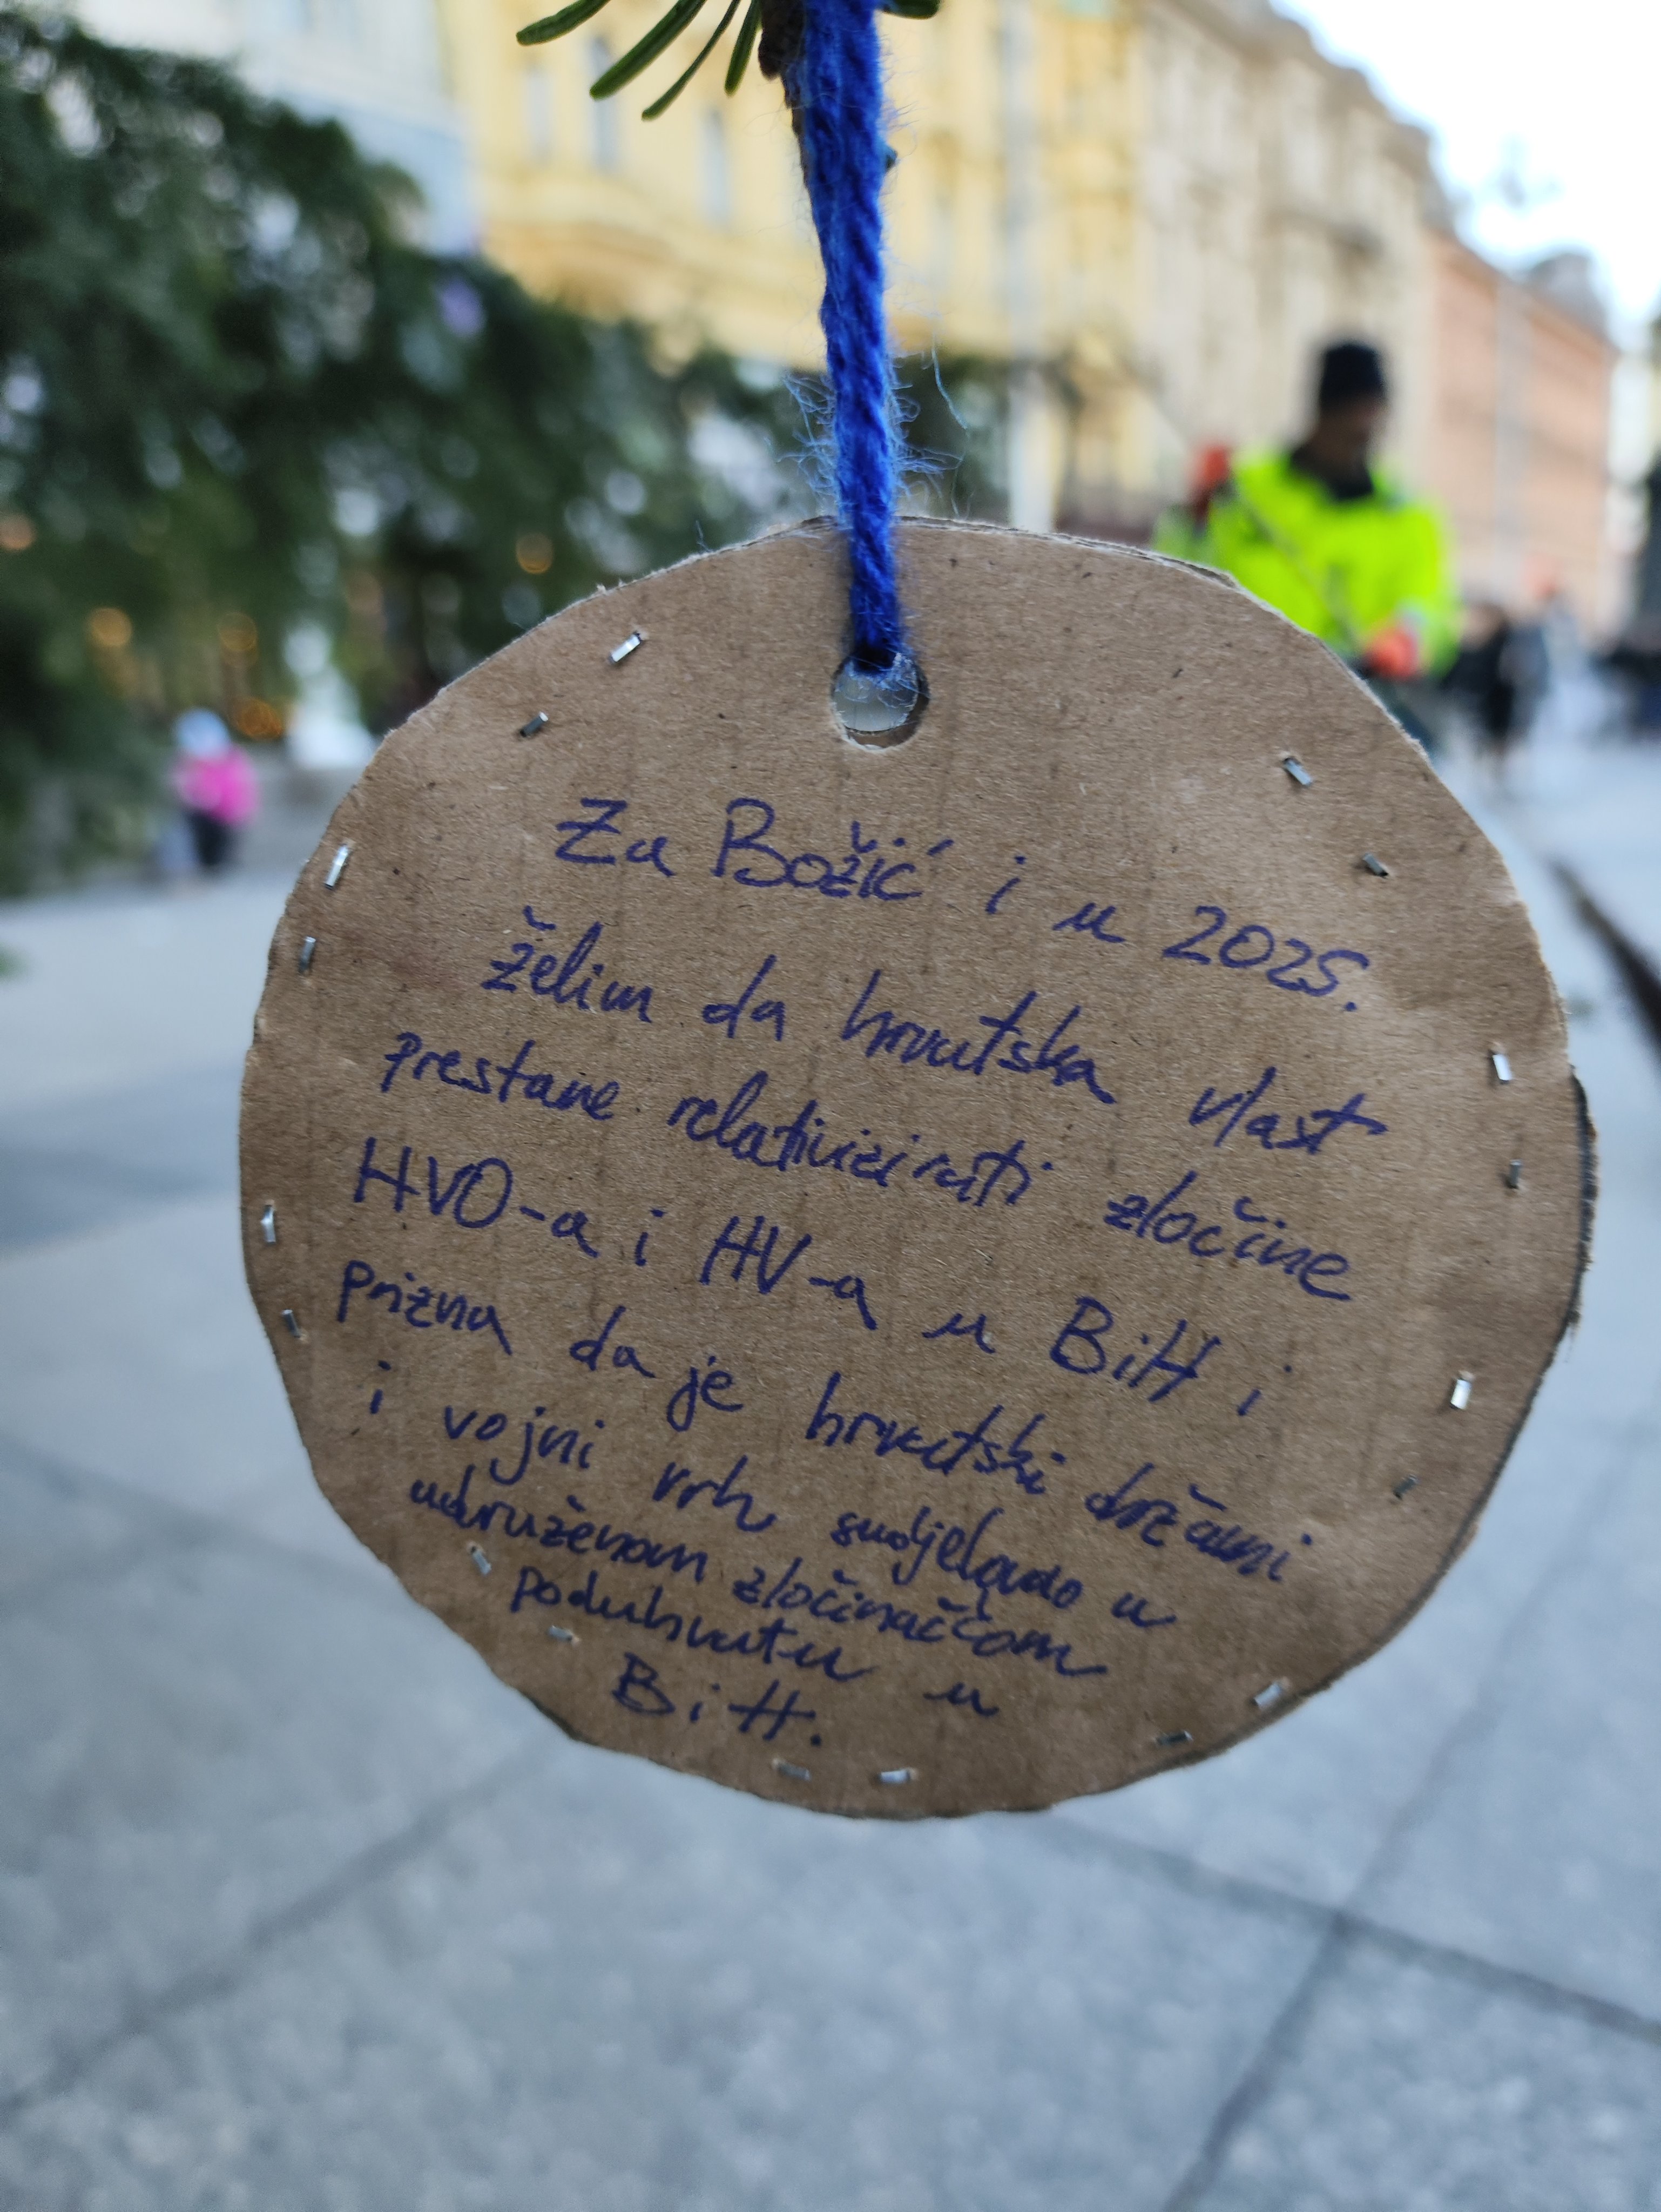 Za Božić i u 2025.
želim da hrvatska vlast
prestane relativizirati zločine
HVO-a i HV-a u BiH i
prizna da je hrvatski državni
i vojni vrh sudjelovao u
udruženom zločinaččom
poduhvatu u
BiH.